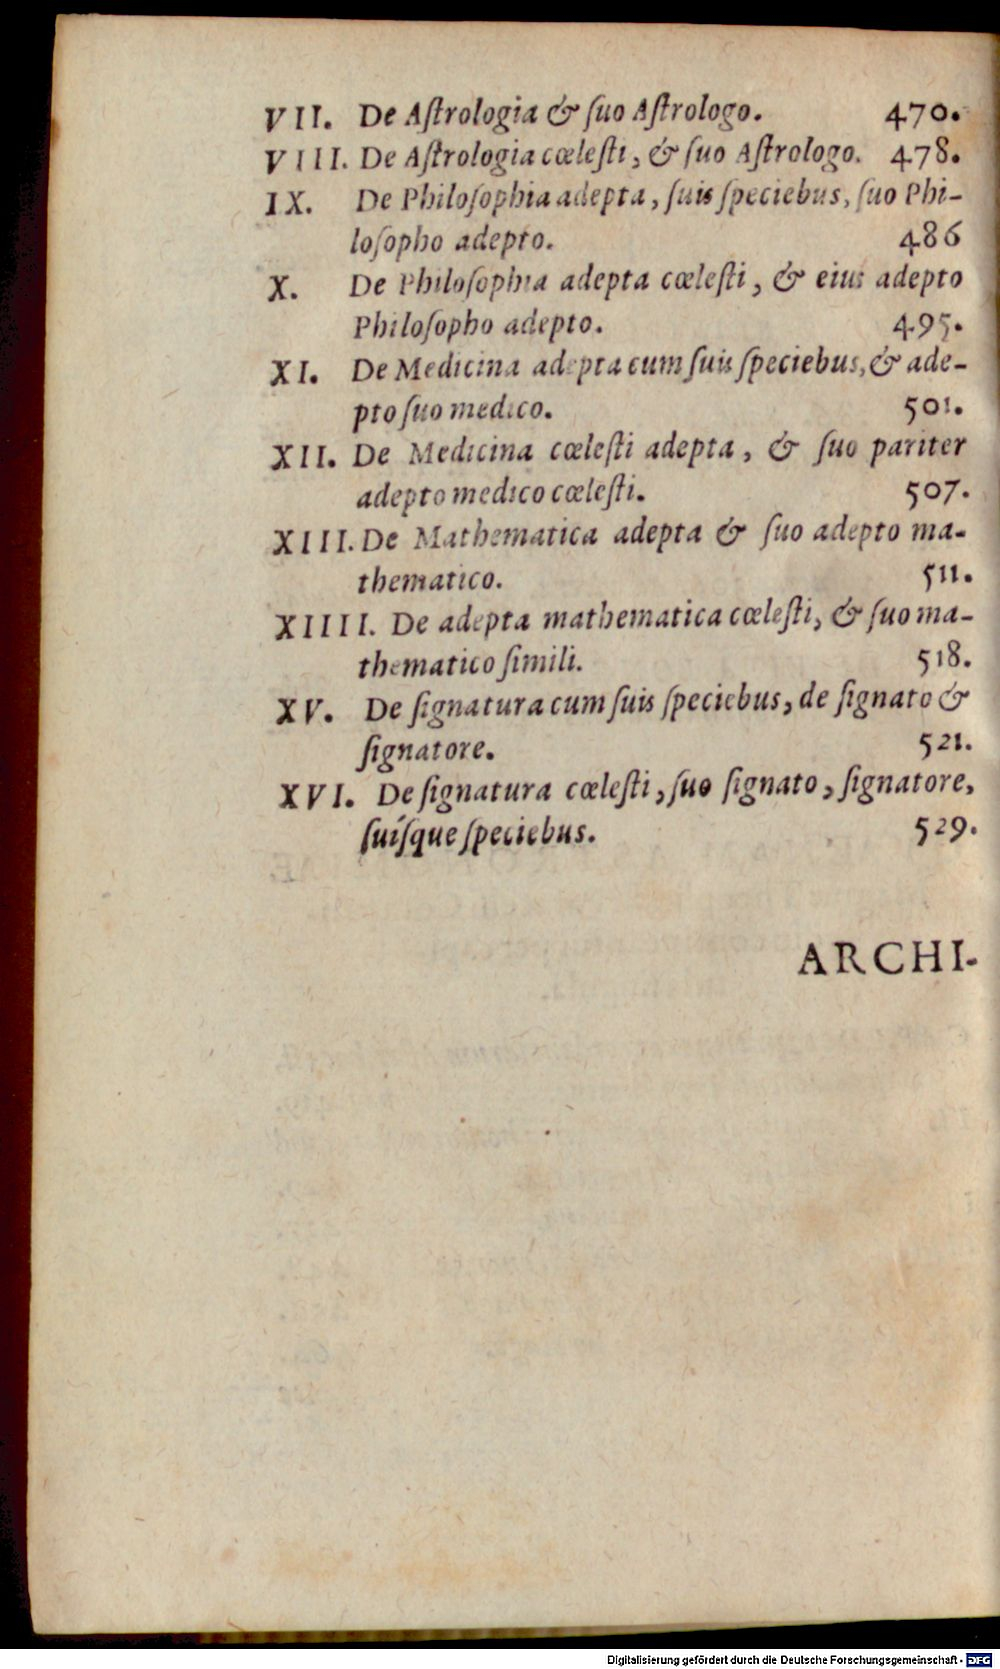 VII. De Aſtrologia & ſuo Aſtrologo. 470.
VIII. De Aſtrologia cœleſti, & ſuo Aſtrologo. 478.
IX. De Philoſophia adepta, ſuis ſpeciebus, ſuo Phi-
loſopho adepto. 486
X. De Philoſophia adepta cœleſti, & eius adepto
Philoſopho adepto. 495.
XI. De Medicina adepta cum ſuis ſpeciebus, & ade-
pto ſuo medico. 501.
XII. De Medicina cœleſti adepta, & ſuo pariter
adepto medico cœleſti. 507.
XIII. De Mathematica adepta & ſuo adepto ma-
thematico. 511.
XIIII. De adepta mathematica cœleſti, & ſuo ma-
thematico ſimili. 518.
XV. De ſignatura cum ſuis ſpeciebus, de ſignato &
ſignatore. 521.
XVI. De ſignatura cœleſti, ſuo ſignato, ſignatore,
ſuíſque ſpeciebus. 529.
ARCHI-
Digitalisierung gefördert durch die Deutsche Forschungsgemeinschaft - DFG